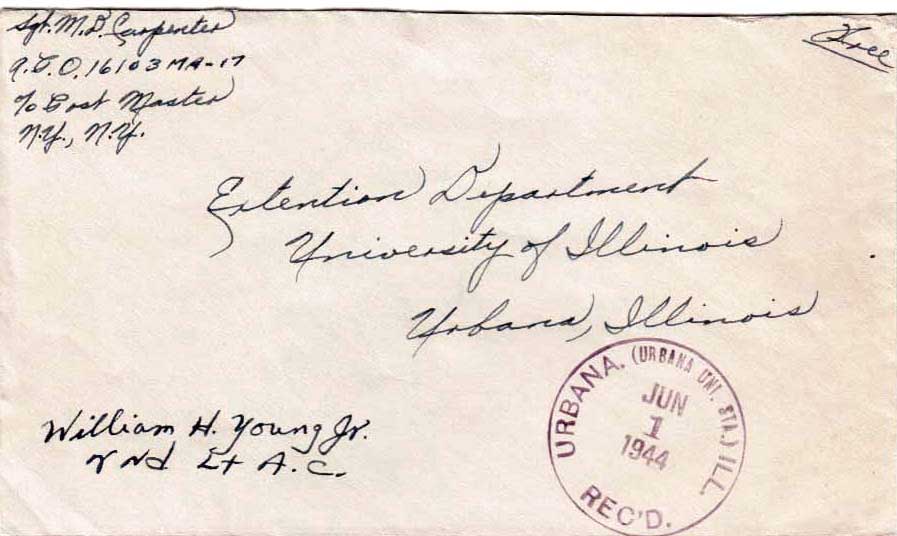 Sgt. M.B. Carpenter
A.P.O. 16103 MA-17
℅ Post Master
N.Y., N.Y.
Free
Extention Department
University of Illinois
Urbana, Illinois
William H. Young Jr.
2nd Lt A.C.
URBANA, (URBANA UNI. STA.) ILL.
JUN
1
1944
REC'D.